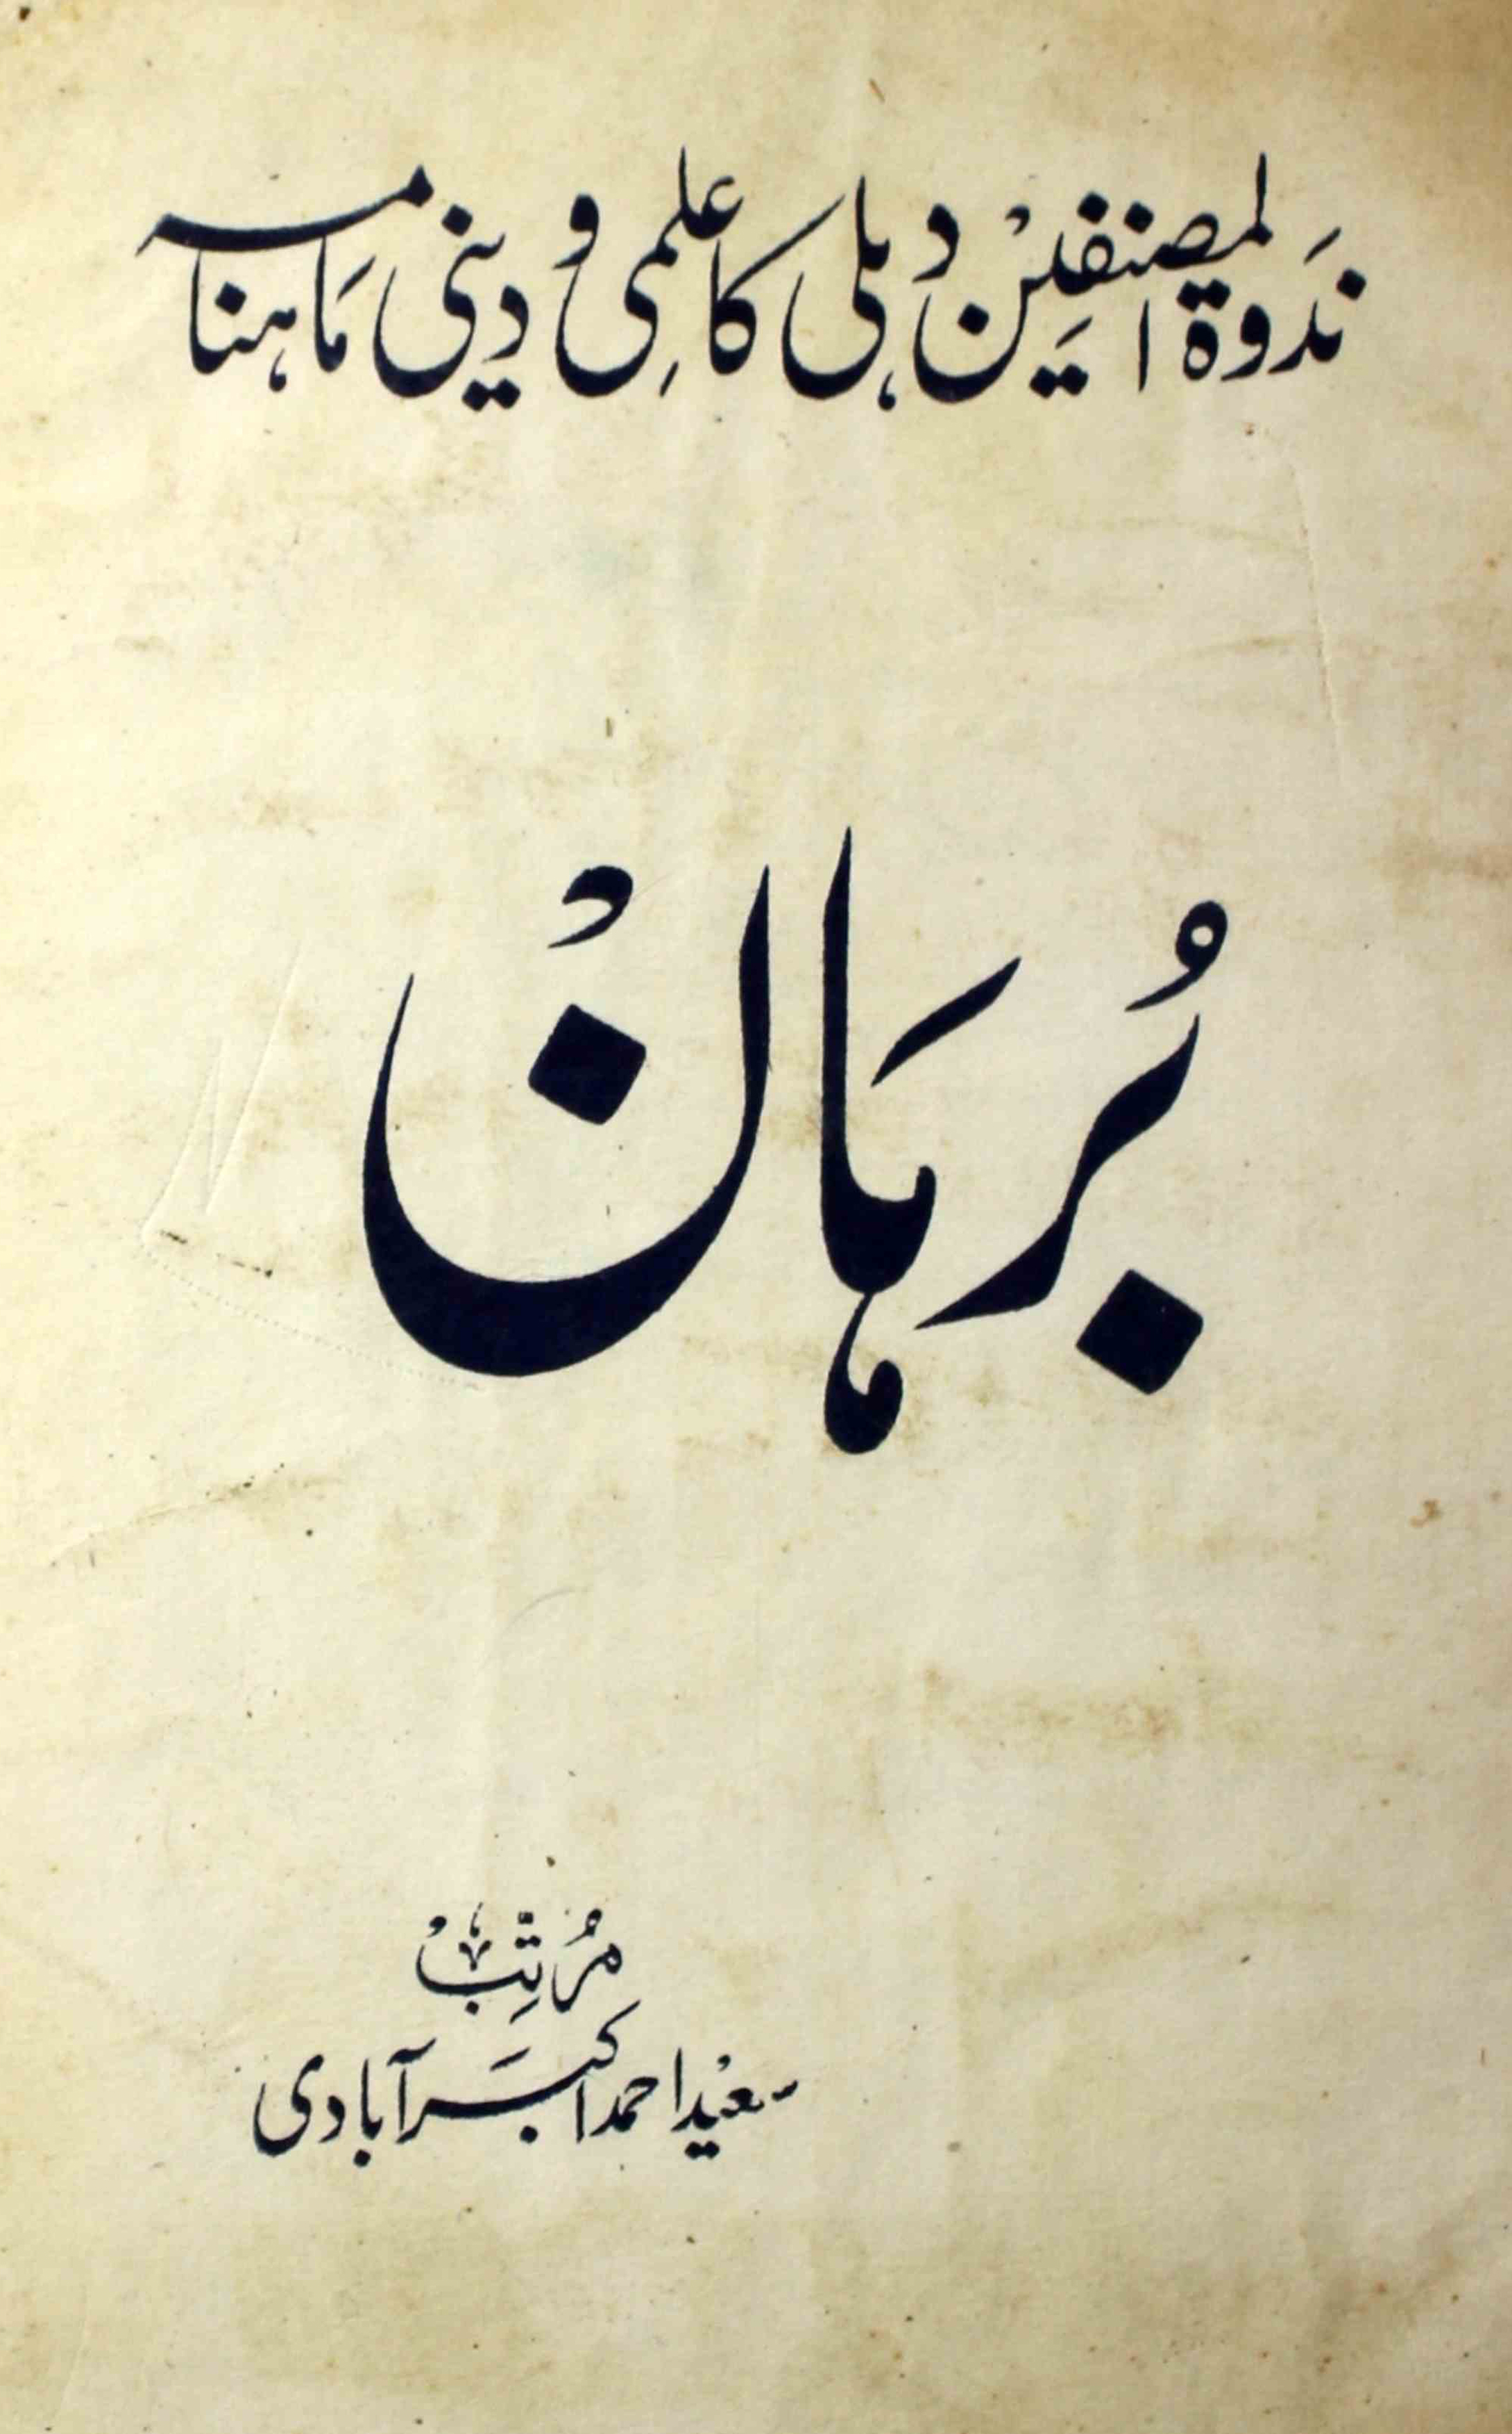 نَدوۃ المصنفین دہلی کا علمِی و دینی مَاہنامہ
بُرہَانْ
مُرتِّبْ
سعیْد احمد اکبَر آبادی